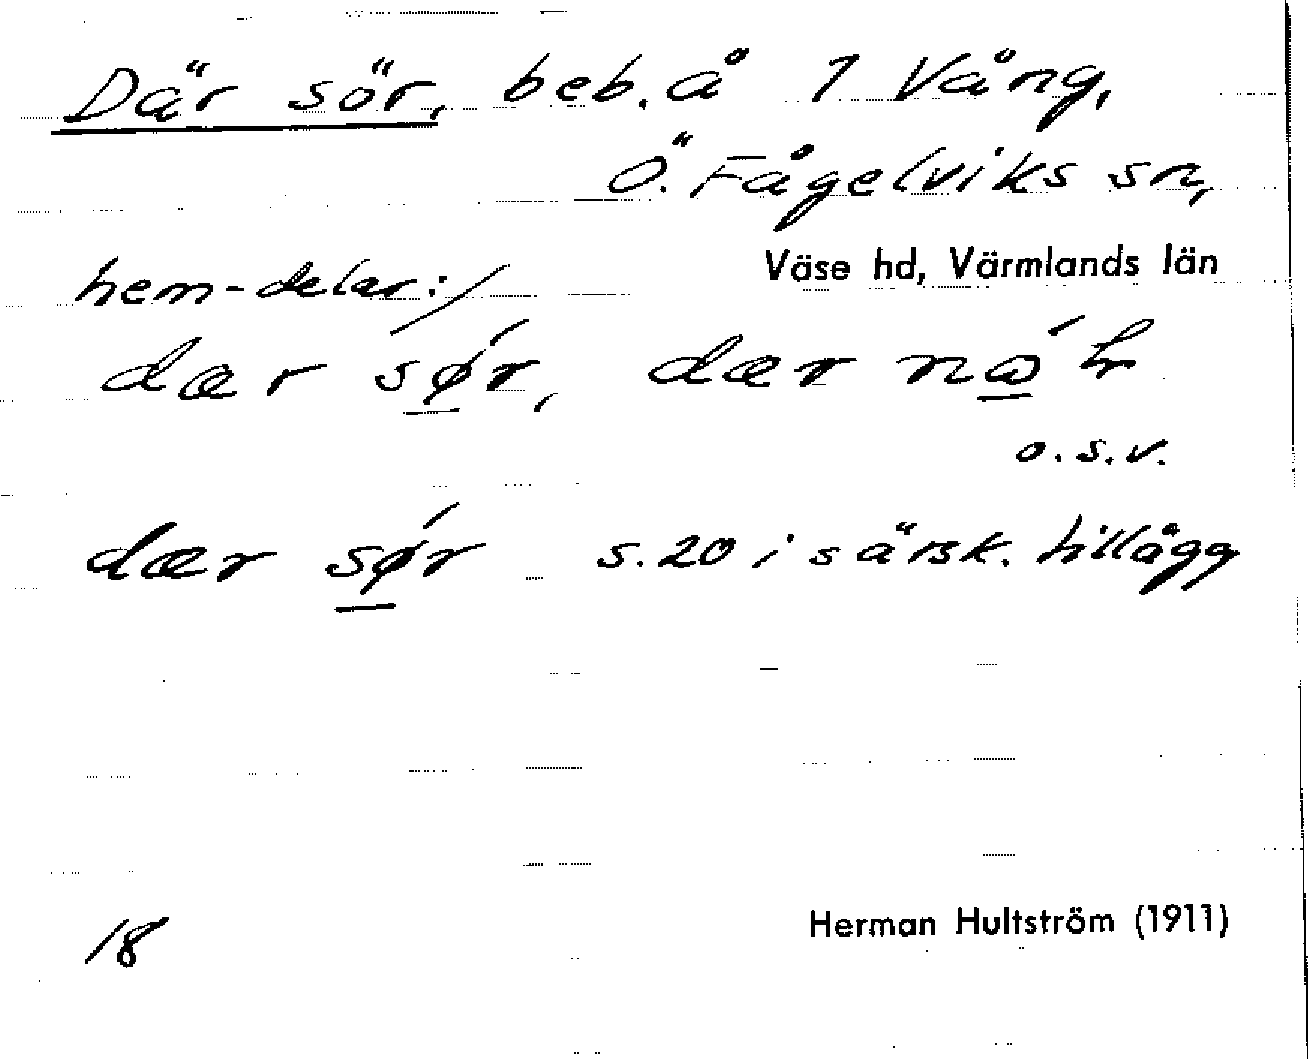 Där sör, beb. å 1 Vång,
Ö. Fågelviks sn,
Väse hd, Värmlands län
hem-delar:/
dær sǿr, dær
o.s.v.
dær sǿr s. 20 i särsk. tillägg
18
Herman Hultström (1911)